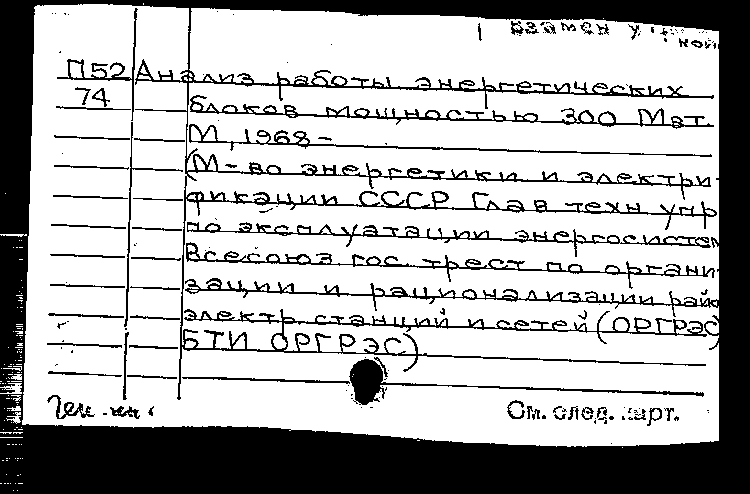 Взамен ут
П52 Анализ работы энергетических
74 блоков мощностью 300 Мвт.
М, 1968-
(М-во энергетики и электри-
фикации СССР Глав техн упр
по эксплуатации энергосистем
Всесоюз. гос. трест по органи-
зации и рационализации райо
электр. станций и сетей (ОРГРЭС)
БТИ ОРГРЭС)
См. след. карт.